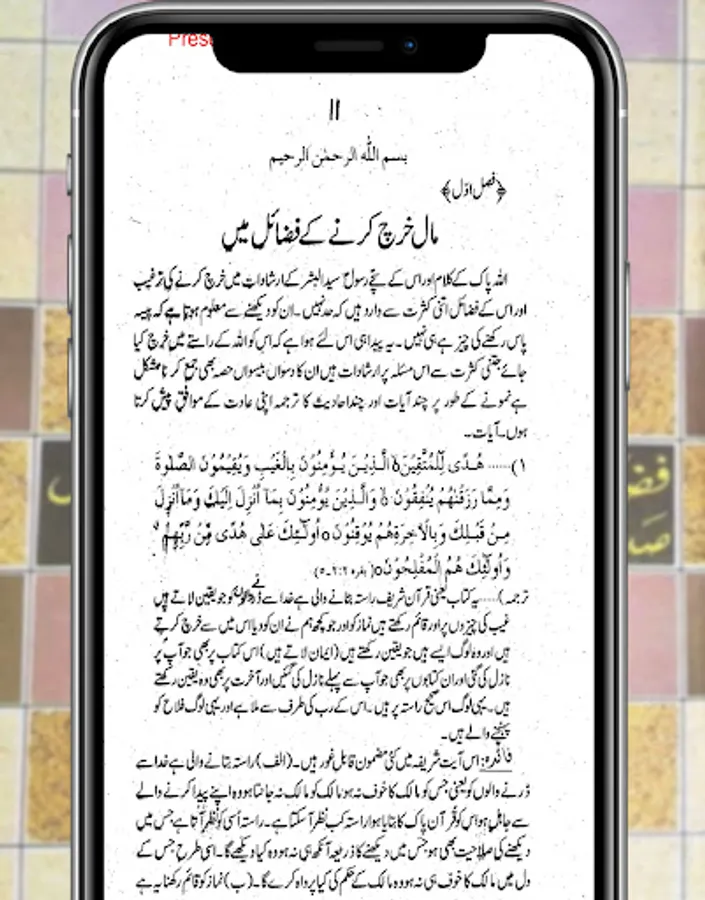 Prese
۱۱
بسم الله الرحمن الرحيم
﴿فصل اوّل﴾
مال خرچ کرنے کے فضائل میں
اللہ پاک کے کلام اور اس کے سچے رسول سید البشر کے ارشادات میں خرچ کرنے کی ترغیب
اور اس کے فضائل اتنی کثرت سے وارد ہیں کہ حد نہیں۔ ان کو دیکھنے سے معلوم ہوتا ہے کہ پیسہ
پاس رکھنے کی چیز ہے ہی نہیں۔ یہ پیدا ہی اس لئے ہوا ہے کہ اس کو اللہ کے راستے میں خرچ کیا
جائے جتنی کثرت سے اس مسئلہ پر ارشادات ہیں ان کا دسواں بیسواں حصہ بھی جمع کرنا مشکل
ہے نمونے کے طور پر چند آیات اور چند احادیث کا ترجمہ اپنی عادت کے موافق پیش کرتا
ہوں۔ آیات۔
۱)...... هُدًى لِّلْمُتَّقِيْنَ ۝ الَّذِيْنَ يُؤْمِنُوْنَ بِالْغَيْبِ وَيُقِيْمُوْنَ الصَّلٰوةَ
وَمِمَّا رَزَقْنٰهُمْ يُنْفِقُوْنَ ۝ وَالَّذِيْنَ يُؤْمِنُوْنَ بِمَآ اُنْزِلَ اِلَيْكَ وَمَآ اُنْزِلَ
مِنْ قَبْلِكَ وَبِالْاٰخِرَةِ هُمْ يُوْقِنُوْنَ ۝ اُولٰٓئِكَ عَلٰى هُدًى مِّنْ رَّبِّهِمْ
وَاُولٰٓئِكَ هُمُ الْمُفْلِحُوْنَ ۝ (بقرہ ۲:۲۔۵)
ترجمہ)...... یہ کتاب یعنی قرآن شریف راستہ بتانے والی ہے خدا سے ڈرنے والوں کو جو یقین لاتے ہیں
غیب کی چیزوں پر اور قائم رکھتے ہیں نماز کو اور جو کچھ ہم نے ان کو دیا اس میں سے خرچ کرتے
ہیں اور وہ لوگ ایسے ہیں جو یقین رکھتے ہیں (ایمان لاتے ہیں) اس کتاب پر بھی جو آپ پر
نازل کی گئی اور ان کتابوں پر بھی جو آپ سے پہلے نازل کی گئیں اور آخرت پر بھی وہ یقین رکھتے
ہیں۔ یہی لوگ اس صحیح راستہ پر ہیں۔ اس کے رب کی طرف سے ملا ہے اور یہی لوگ فلاح کو
پہنچنے والے ہیں۔
فائدہ: اس آیت شریفہ میں کئی مضمون قابل غور ہیں۔ (الف) راستہ بتانے والی ہے خدا سے
ڈرنے والوں کو یعنی جس کو مالک کا خوف نہ ہو مالک کو مالک نہ جانتا ہو وہ اپنے پیدا کرنے والے
سے جاہل ہو اس کو قرآن پاک کا بتایا ہوا راستہ کب نظر آ سکتا ہے۔ راستہ اُسی کو نظر آتا ہے جس میں
دیکھنے کی صلاحیت بھی ہو جس میں دیکھنے کا ذریعہ آنکھ ہی نہ ہو وہ کیا دیکھے گا۔ اسی طرح جس کے
دل میں مالک کا خوف ہی نہ ہو وہ مالک کے حکم کی کیا پرواہ کرے گا۔ (ب) نماز کو قائم رکھنا یہ ہے